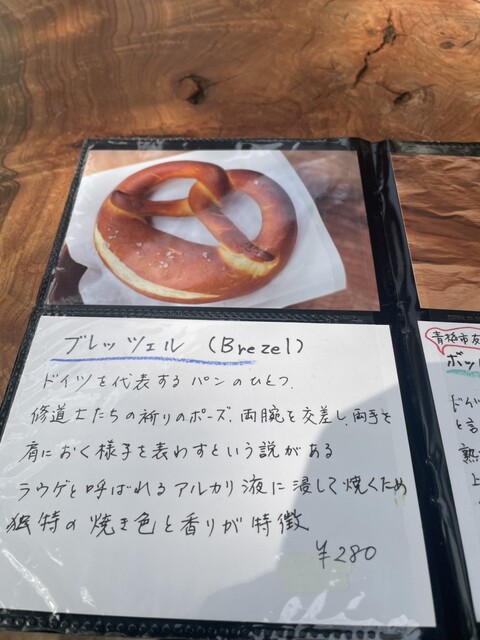 ブレッツェル (Brezel)
ドイツを代表するパンのひとつ.
修道士たちの祈りのポーズ. 両腕を交差し. 両手を
肩におく様子を表わすという説がある
ラウゲと呼ばれるアルカリ液に浸して焼くため
独特の焼き色と香りが特徴
¥280
青梅市友
ボッ
ドイツ
と言
熟
上